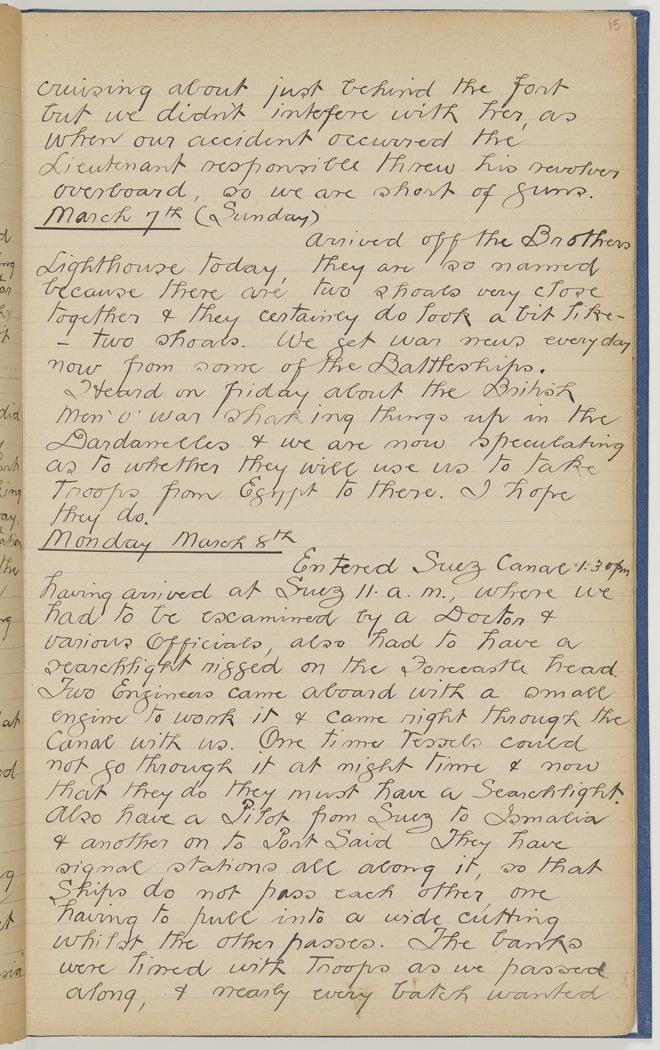 15
cruising about just behind the fort
but we didn't intefere with her, as
when our accident occurred the
Lieutenant responsible threw his revolver
overboard, so we are short of guns.
March 7th (Sunday)
Arrived off the Brothers
Lighthouse today, they are so named
because there are two shoals very close
together & they certainly do look a bit like-
- two shoals. We get war news everyday
now from some of the Battleships.
Heard on friday about the British
Men 'o' war shaking things up in the
Dardanelles & we are now speculating
as to whether they will use us to take
Troops from Egypt to there. I hope
they do.
Monday March 8th
Entered Suez Canal 1.30pm
having arrived at Suez 11. a. m., where we
had to be escamined by a Doctor &
various Officials, also had to have a
searchlight rigged on the Forecastle head.
Two Engineers came aboard with a small
engine to work it & came right through the
Canal with us. One time Vessels could
not go through it at night time & now
that they do they must have a Searchlight.
Also have a Pilot from Suez to Ismalia
& another on to Port Said They have
signal stations all along it, so that
Ships do not pass each other, one
having to pull into a wide cutting
whilst the other passes. The banks
were lined with Troops as we passed
along, & nearly every batch wanted